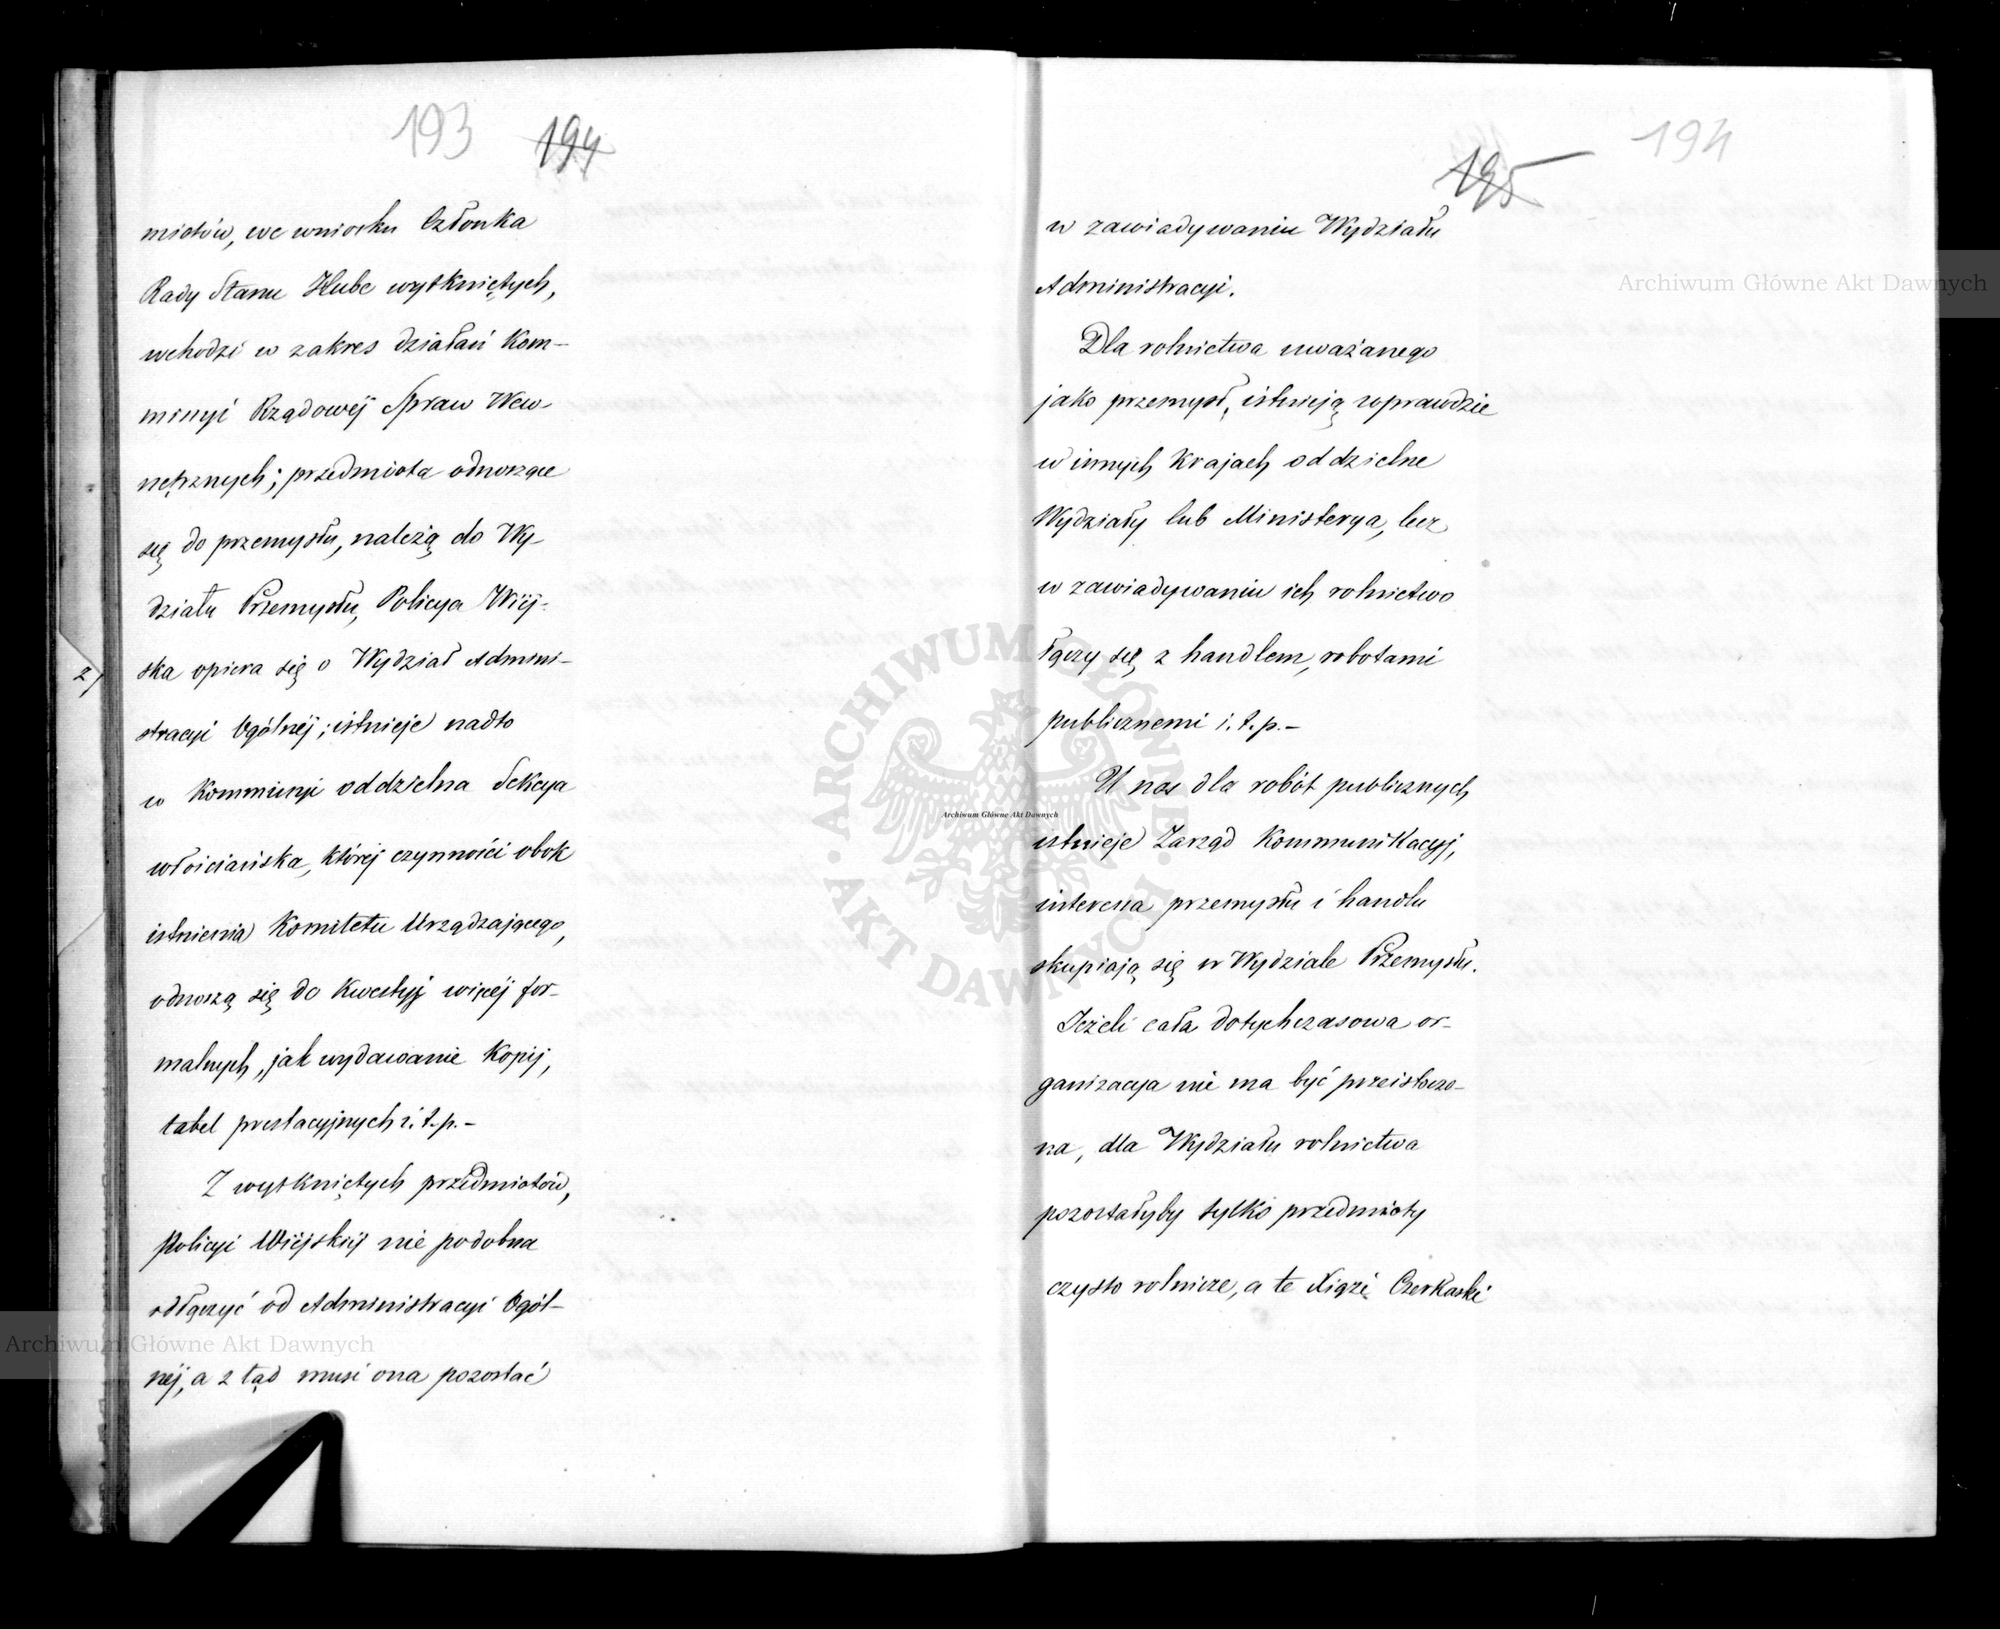 193 194
miotów, we wniosku Członka
Rady Stanu Hube wytkniętych,
wchodzi w zakres działań Kom-
missyi Rządowéj Spraw Wew-
nętrznych; przedmiota odnoszące
się do przemysłu, należą do Wy-
działu Przemysłu, Policya Wiéj-
ska opiera się o Wydział Admini-
stracyi Ogólnéj; istnieje nadto
w Kommissyi oddzielna Sekcya
włościańska, któréj czynności obok
istnienia Komitetu Urządzającego,
odnoszą się do Kwestyj więcéj for-
malnych, jak wydawanie Kopij,
tabel prestacyjnych i. t. p. -
Z wytkniętych przedmiotów,
Policyi Wiejskiéj nie podobna
odłączyć od Administracyi Ogól-
néj, a z tąd musi ona pozostać
2)
195 194
w zawiadywaniu Wydziału
Administracyi.
Dla rolnictwa uważanego
jako przemysł, istnieją wprawdzie
w innych Krajach oddzielne
Wydziały lub Ministerya, lecz
w zawiadywaniu ich rolnictwo
łączy się z handlem, robotami
publicznemi i. t. p. -
U nas dla robót publicznych
istnieje Zarząd Kommunikacyj,
interessa przemysłu i handlu
skupiają się w Wydziale Przemysłu.
Jeżeli cała dotychczasowa or-
ganizacya nie ma być przeistoczo-
na, dla Wydziału rolnictwa
pozostałyby tylko przedmioty
czysto rolnicze, a te Xiąże Czerkaski
Archiwum Główne Akt Dawnych
Archiwum Główne Akt Dawnych
Archiwum Główne Akt Dawnych
ARCHIWUM GŁÓWNE · AKT DAWNYCH ·